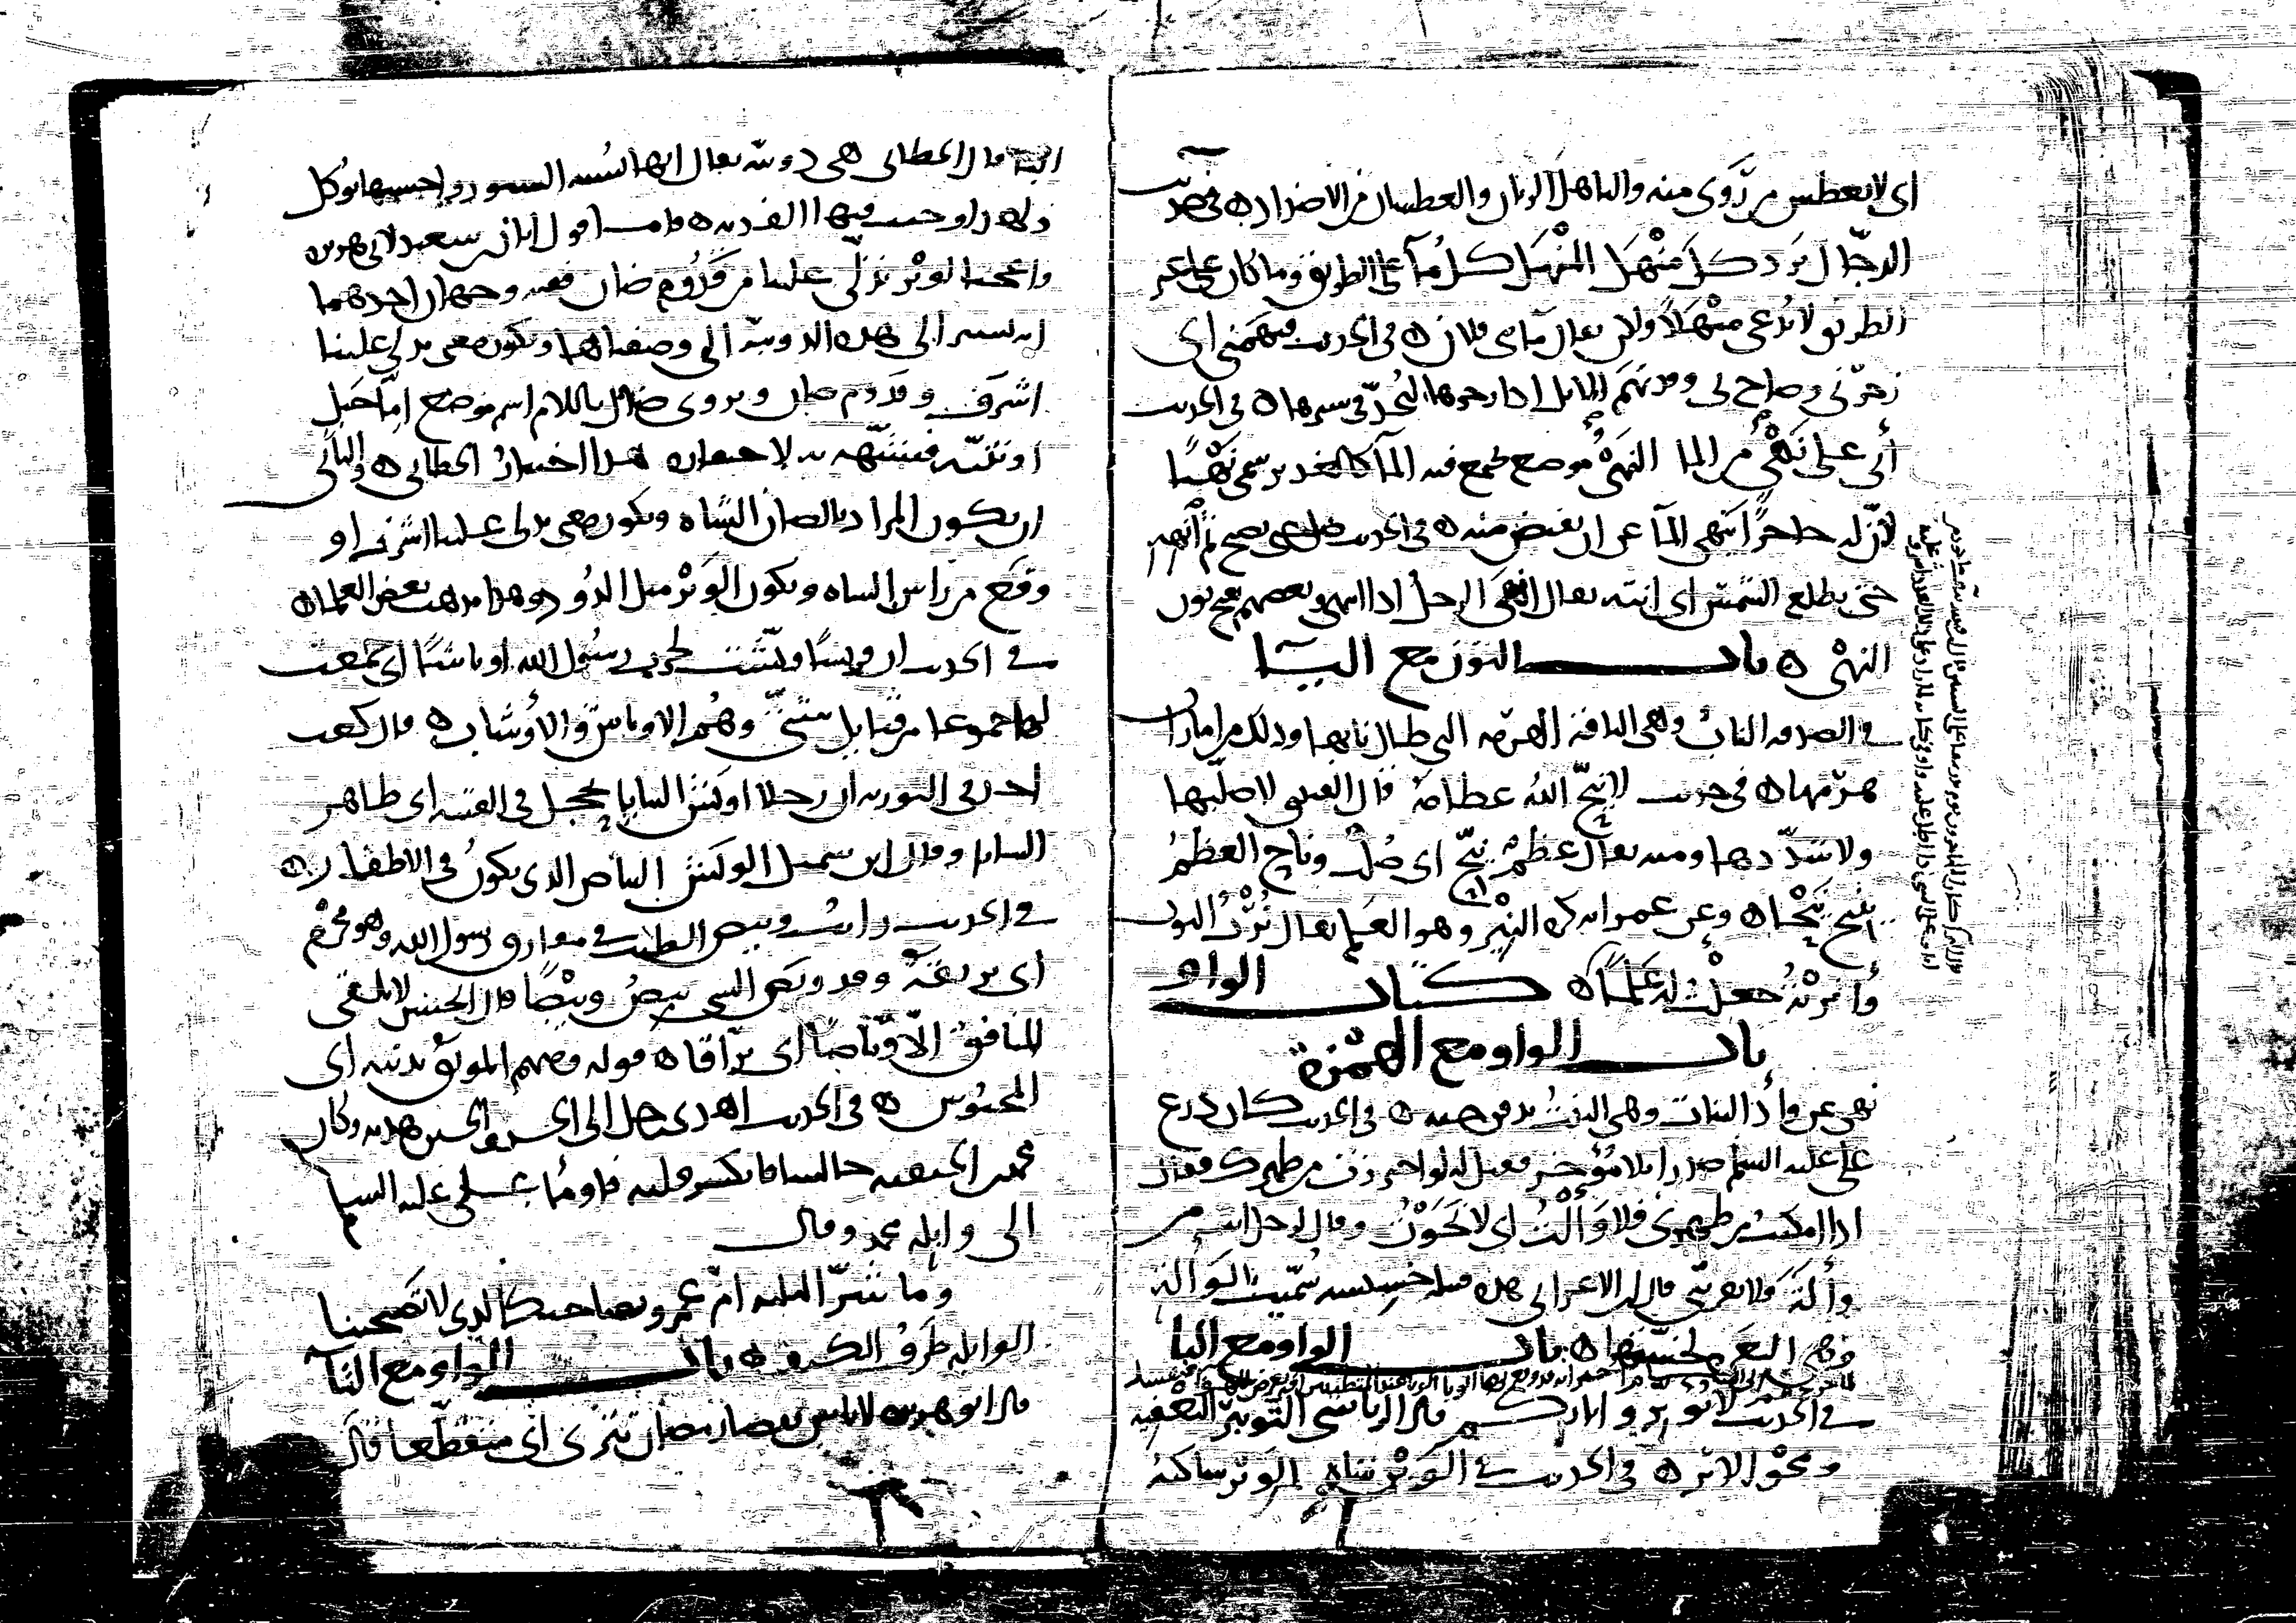 اي لا يعطش من روى منه والناهل الريان والعطشان من الاضداد ه في حديث
الدجال يرد كل منهل المنهل كل ماء على الطريق وما كان على غير
الطريق لا يدعى منهلا ولكن يقال ماء بني فلان ه في الحديث فنهمني اي
زجرني وصاح بي وقد نهم الابل اذا زجرها لتجد في سيرها ه في الحديث
أتى على نهي من الماء النهي موضع يجتمع فيه الماء كالغدير سمي نهيا
لأن له حاجزا ينهى الماء عن ان يفيض منه ه في الحديث صلى حتى تصبح ثم أنهه
حتى تطلع الشمس اي انته يقال انهى الرجل اذا انتهى وبعضهم يقول
النهي ه باب النون مع اليا
في الصدقة الناب وهي الناقة الهرمة التي طال نابها وذلك من امارات
هرمها ه في حديث لا نيح الله عظامه قال القتيبي لا صلبها
ولا شددها ومنه يقال عظم نيح اي صلب وناح العظم
ينيح نيحا ه وعن عمر انه كره النير وهو العلم يقال نرت الثوب
وأنرته جعلت له علما ه كتاب الواو
باب الواو مع الهمزة
نهى عن وأد البنات وهي البنت تدفن حية ه في الحديث كان درع
علي عليه السلم صدرا بلا مؤخر فقيل له لو احترزت من ظهرك فقال
اذا امكنت من ظهري فلا وألت اي لا نجوت وقال لرجل انت من
وألة فلا تقربني قال ابن الاعرابي هذه قبيلة خسيسة سميت بالوألة
وهي البعرة لخستها ه باب الواو مع البا
في الحديث لا توبروا اثاركم قال الرياشي التوبير التعفية
ومحو الاثر ه في الحديث في الوبر شاة الوبر ساكنة
البا قال الخطابي هي دويبة يقال انها تشبه السنور واحسبها توكل
ولهذا وجبت فيها الفدية ه فاما قول ابان بن سعيد لابي هريرة
واعجبا لوبر تدلى علينا من قدوم ضان ففيه وجهان احدهما
انه نسبه الى هذه الدويبة التي وصفناها ويكون معنى تدلى علينا
اشرف وقدوم ضان ويروى ضال باللام اسم موضع اما جبل
او ثنية فشبهه به لاحتقاره هذا اختيار الخطابي ه والثاني
ان يكون المراد بالضان الشاه ويكون معنى تدلى علينا اشرف او
وقع من راس الشاه ويكون الوبر مثل الدود وهذا مذهب بعض العلماء ه
في الحديث ان قريشا وبشت لحرب رسول الله اوباشا اي جمعت
لها جموعا من قبايل شتى وهم الاوباش والاوشاب ه قال كعب
اجد في التوريه ان رجلا اوبش الثنايا يحجل في الفتنه اي ظاهر
الثنايا وقال ابن شميل الوبش البياض الذي يكون في الاظفار ه
في الحديث رايت وبيص الطيب في مفارق رسول الله وهو محرم
اي بريقه وقد وبص الشي يبص وبيصا قال الحسن لا تلقى
المنافق الا وباصا اي براقا ه قوله ومنهم الموبق بذنبه اي
المحبوس ه في الحديث اهدى رجل الى الحسن والحسين هدية وكان
محمد بن الحنفيه جالسا فانكسر قلبه فاومأ علي عليه السلم
الى وابلة محمد وقال
وما شر الثلثة ام عمرو بصاحبك الذي لا تصبحينا
الوابله طرف الكتف ه باب الواو مع التا
قال ابو هريره لا باس بقضا رمضان تترى اي متقطعا قال